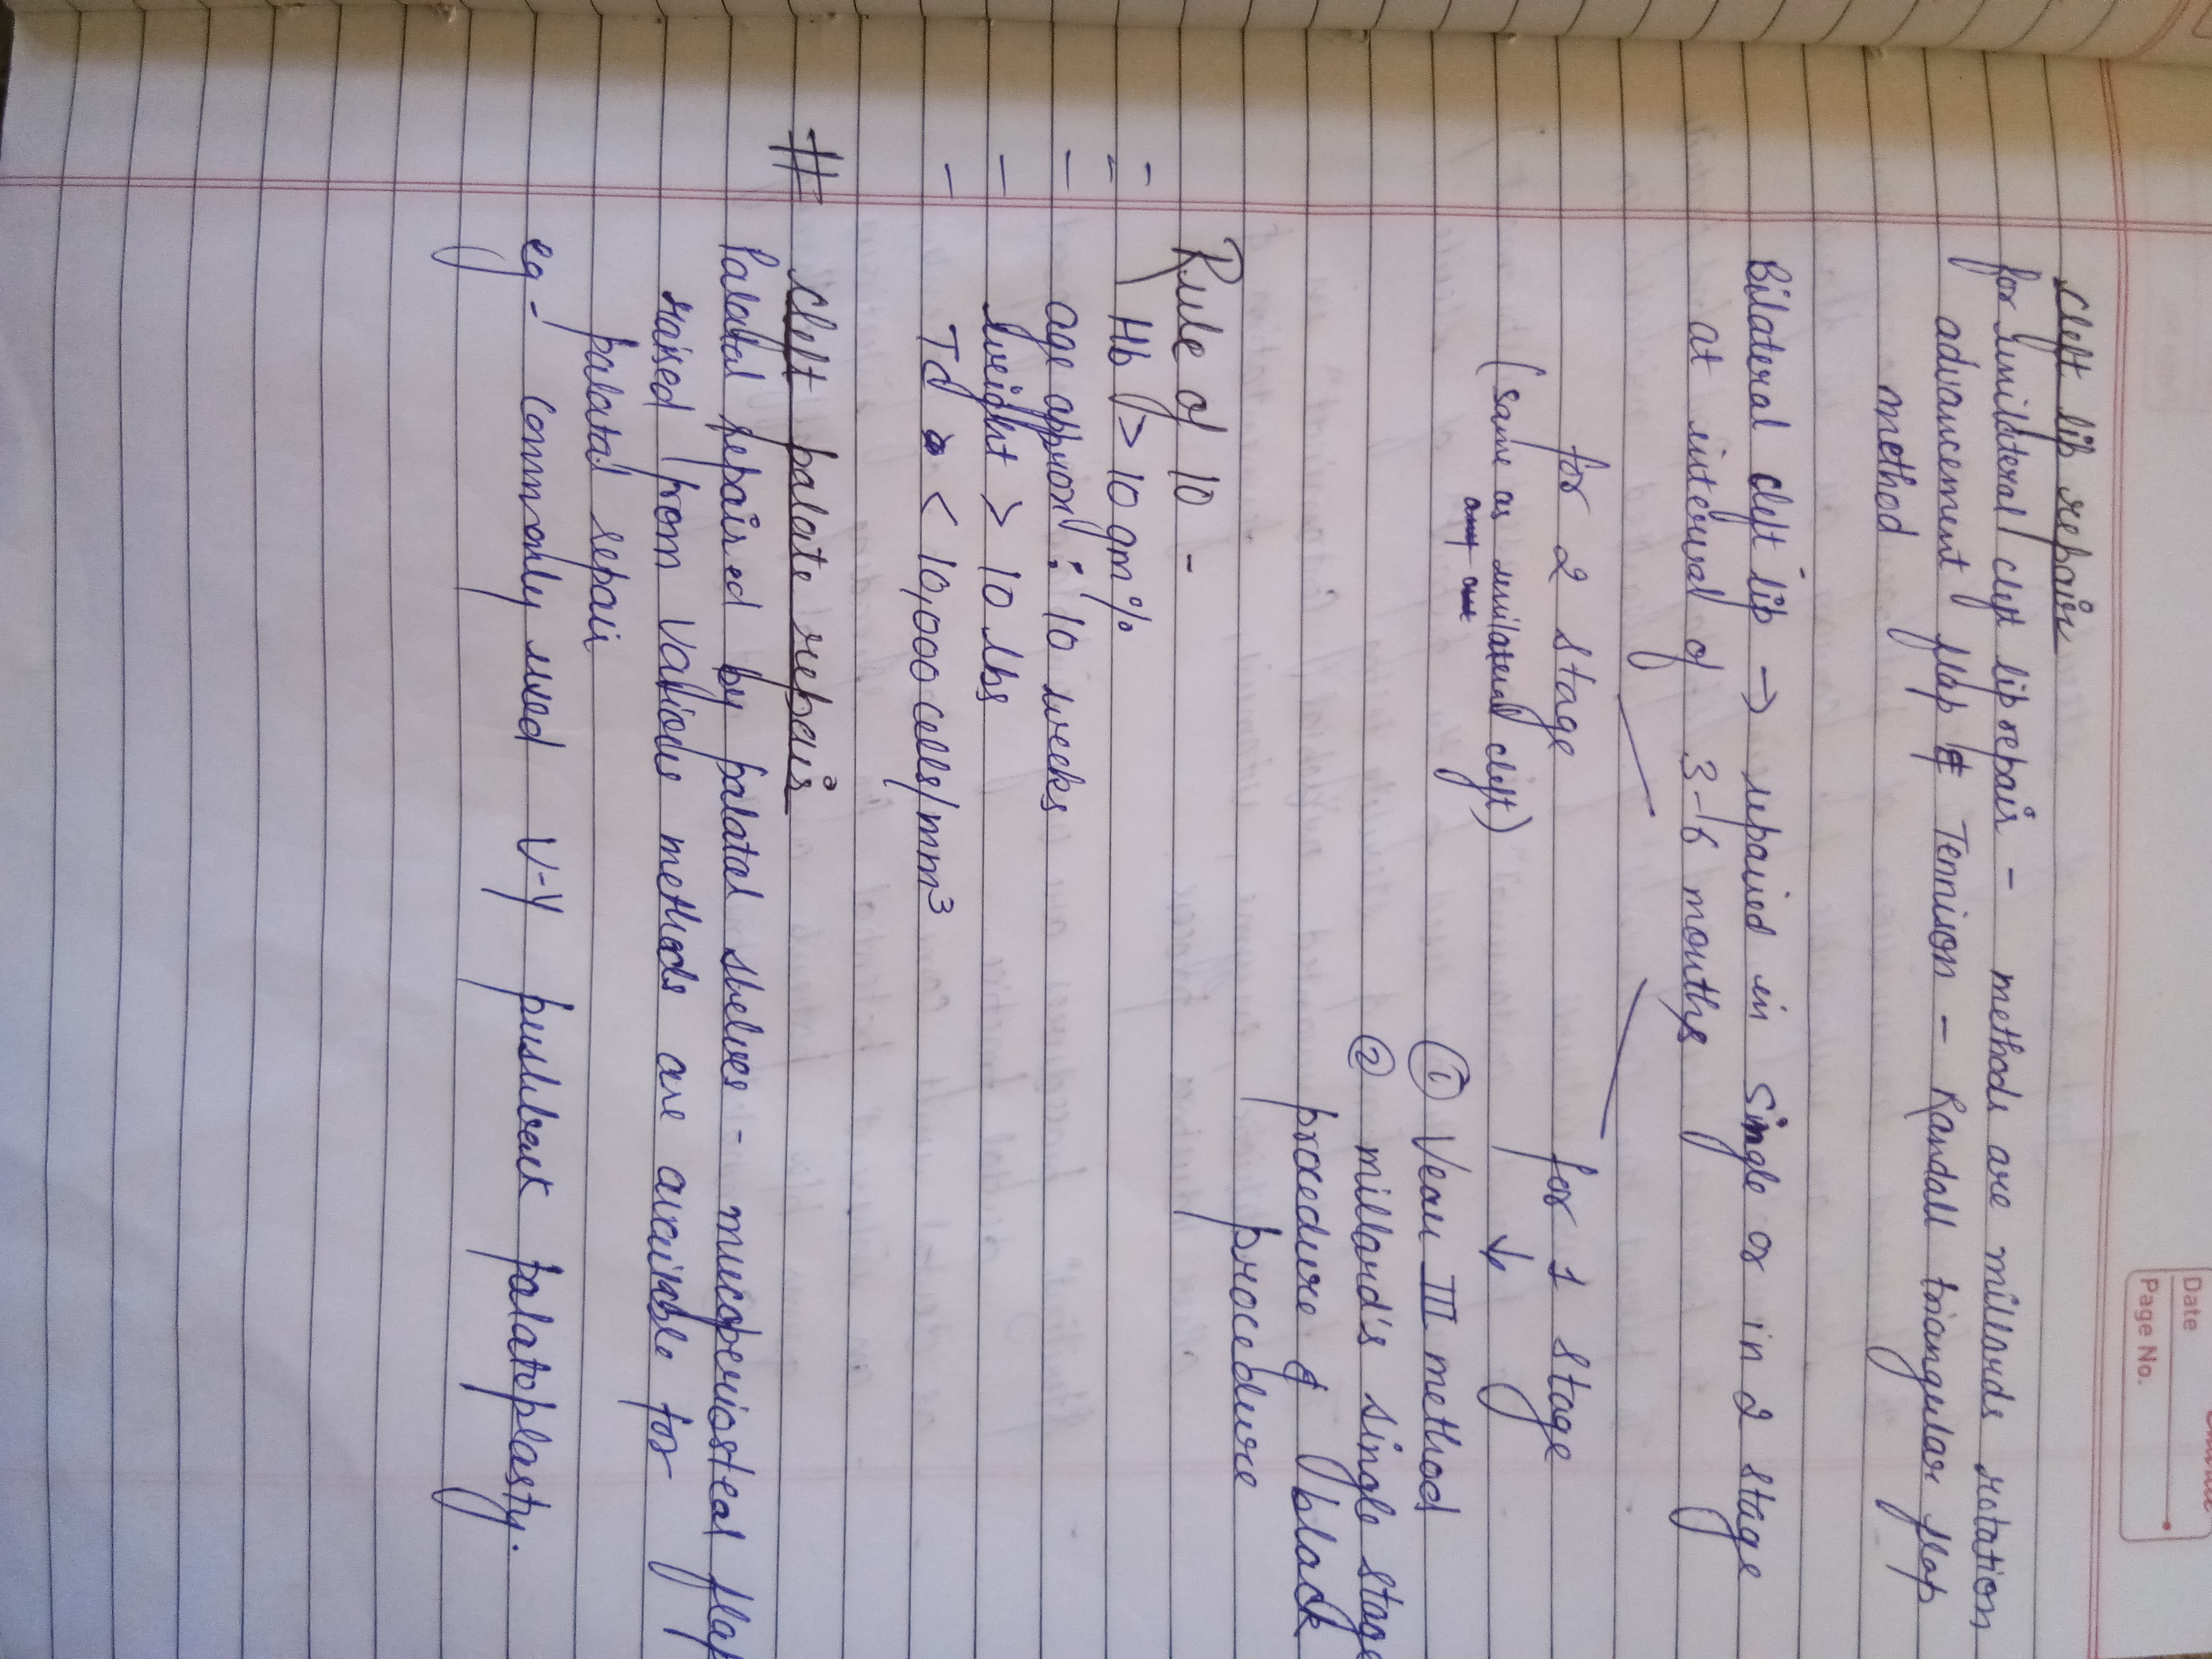 Date
Page No.
Cleft lip repair
for unilateral cleft lip repair - methods are millards rotation
advancement flap & Tennison - Randall triangular flap
method
Bilateral cleft lip → repaired in Single or in 2 stage
at interval of 3-6 months
for 2 stage for 1 stage
(same as unilateral cleft) ↓
① Veau III method
② millard's single stage
procedure & black
procedure
Rule of 10 -
- Hb > 10 gm%
- age approx : 10 weeks
- weight > 10 lbs
- < 10,000 cells/mm³
# Cleft palate repair
Palatal repaired by palatal shelves - mucoperiosteal flap
raised from Various methods are available for
palatal repair
eg - Commonly used V-Y pushback palatoplasty.